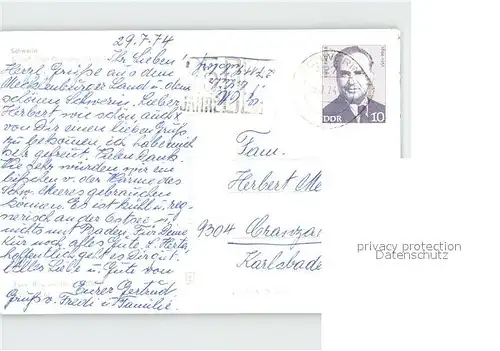 Schwerin
29.7.74
Ihr Lieben!
Herzl. Grüße aus dem
Mecklenburger Land u. dem
schönen Schwerin. Lieber
Herbert wie schön, auch
von Dir einen lieben Gruß
zu bekommen, ich habe mich
sehr gefreut. Vielen Dank.
Wie sehr würden wir ein
bißchen v. der Wärme des
Schw. Meeres gebrauchen
können. Es ist kühl u. reg-
nerisch an der Ostsee u.
nichts mit Baden. Für Deine
Kur noch alles Gute. L. Herta,
hoffentlich geht es Dir gut.
Alles Liebe u. Gute von
Eurer Gertrud
Gruß v. Fredi u. Familie.
JAHRE
DDR 10
Fam.
Herbert Me
9304 Cranza
Karlsbade
privacy protection
Datenschutz